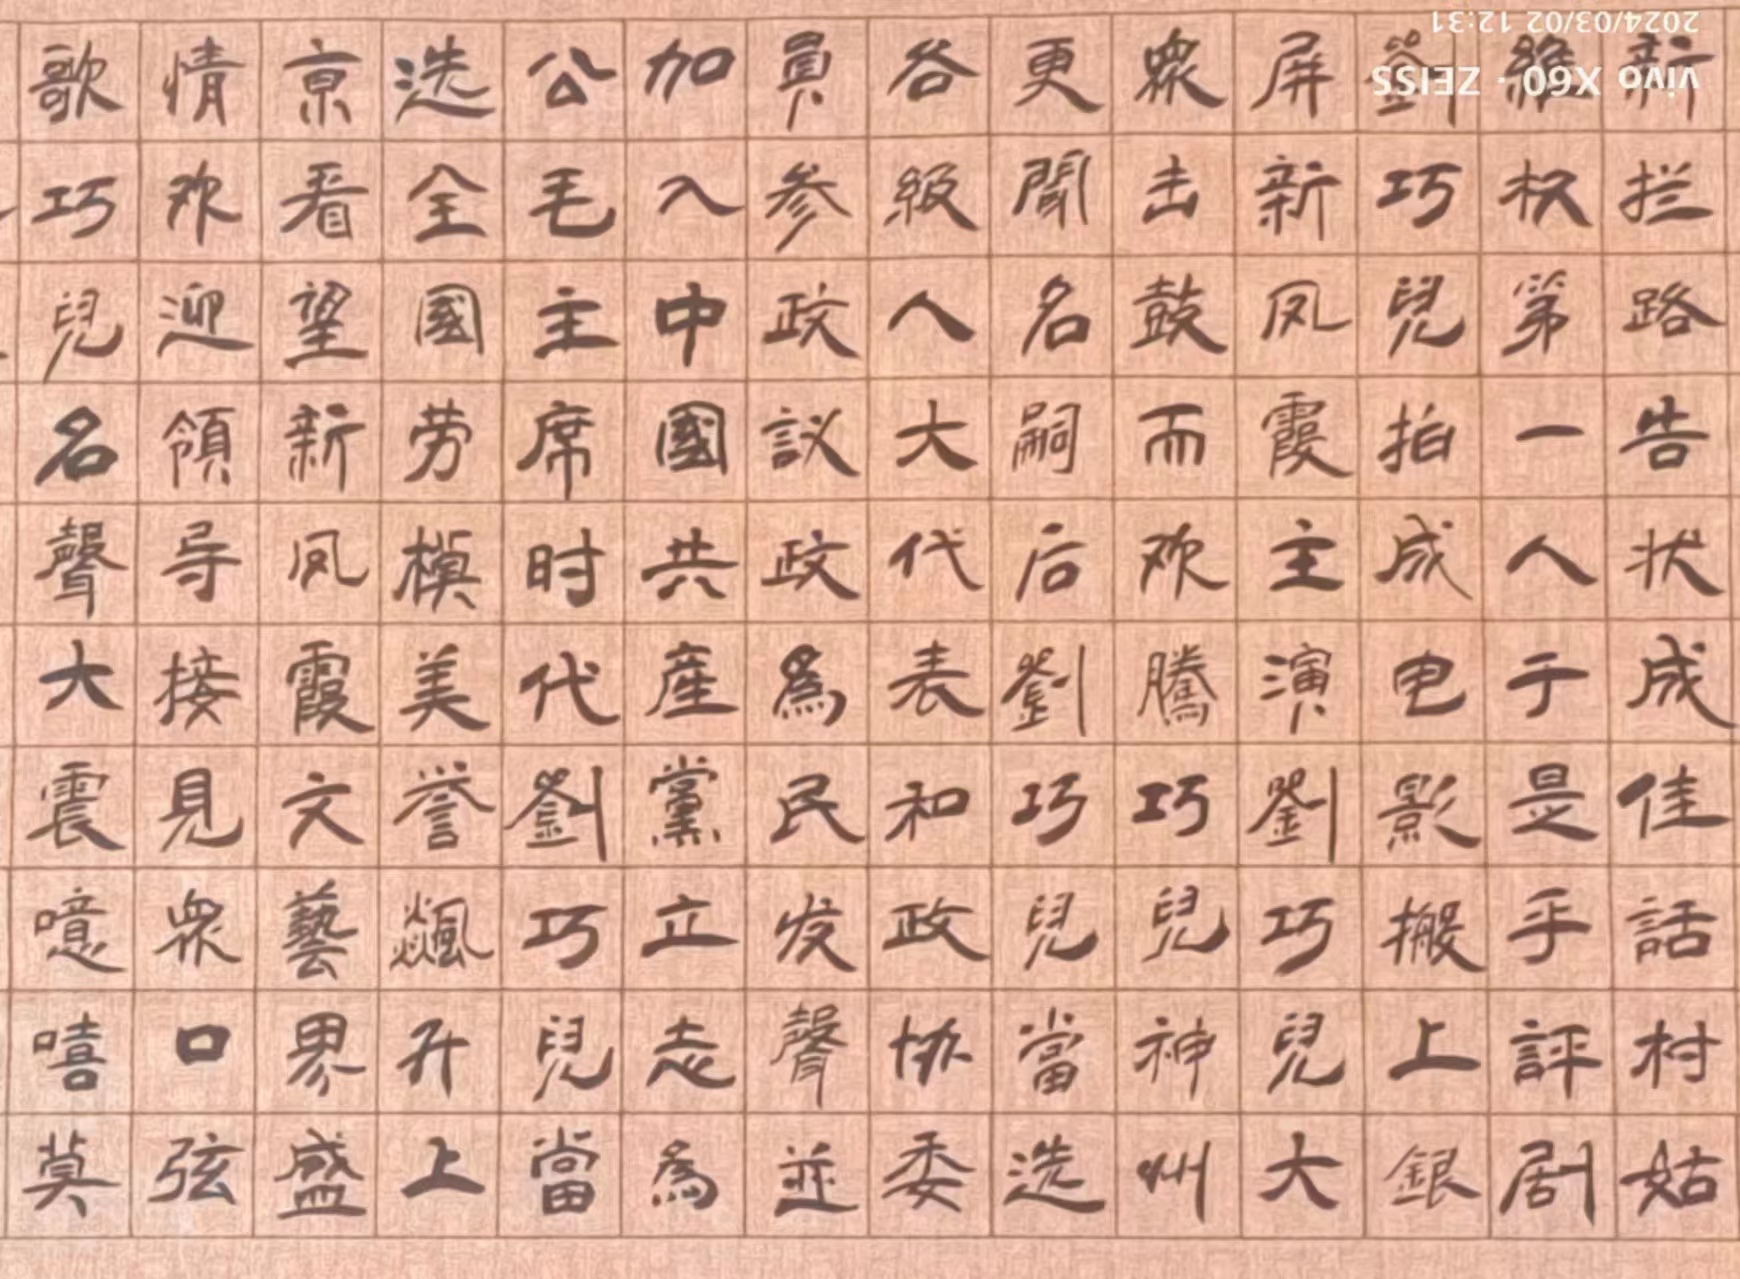 新拦路告状成佳話村姑
維权第一人于是乎評剧
劉巧兒拍成电影搬上銀
屏新凤霞主演劉巧兒大
眾击鼓而欢騰巧兒神州
更聞名嗣后劉巧兒當选
各級人大代表和政协委
員参政議政為民发聲並
加入中國共産黨立志為
公毛主席时代劉巧兒當
选全國劳模美誉飈升上
京看望新凤霞文藝界盛
情欢迎領导接見眾口弦
歌巧兒名聲大震噫嘻莫
vivo X60 · ZEISS
2024/03/02 12:31